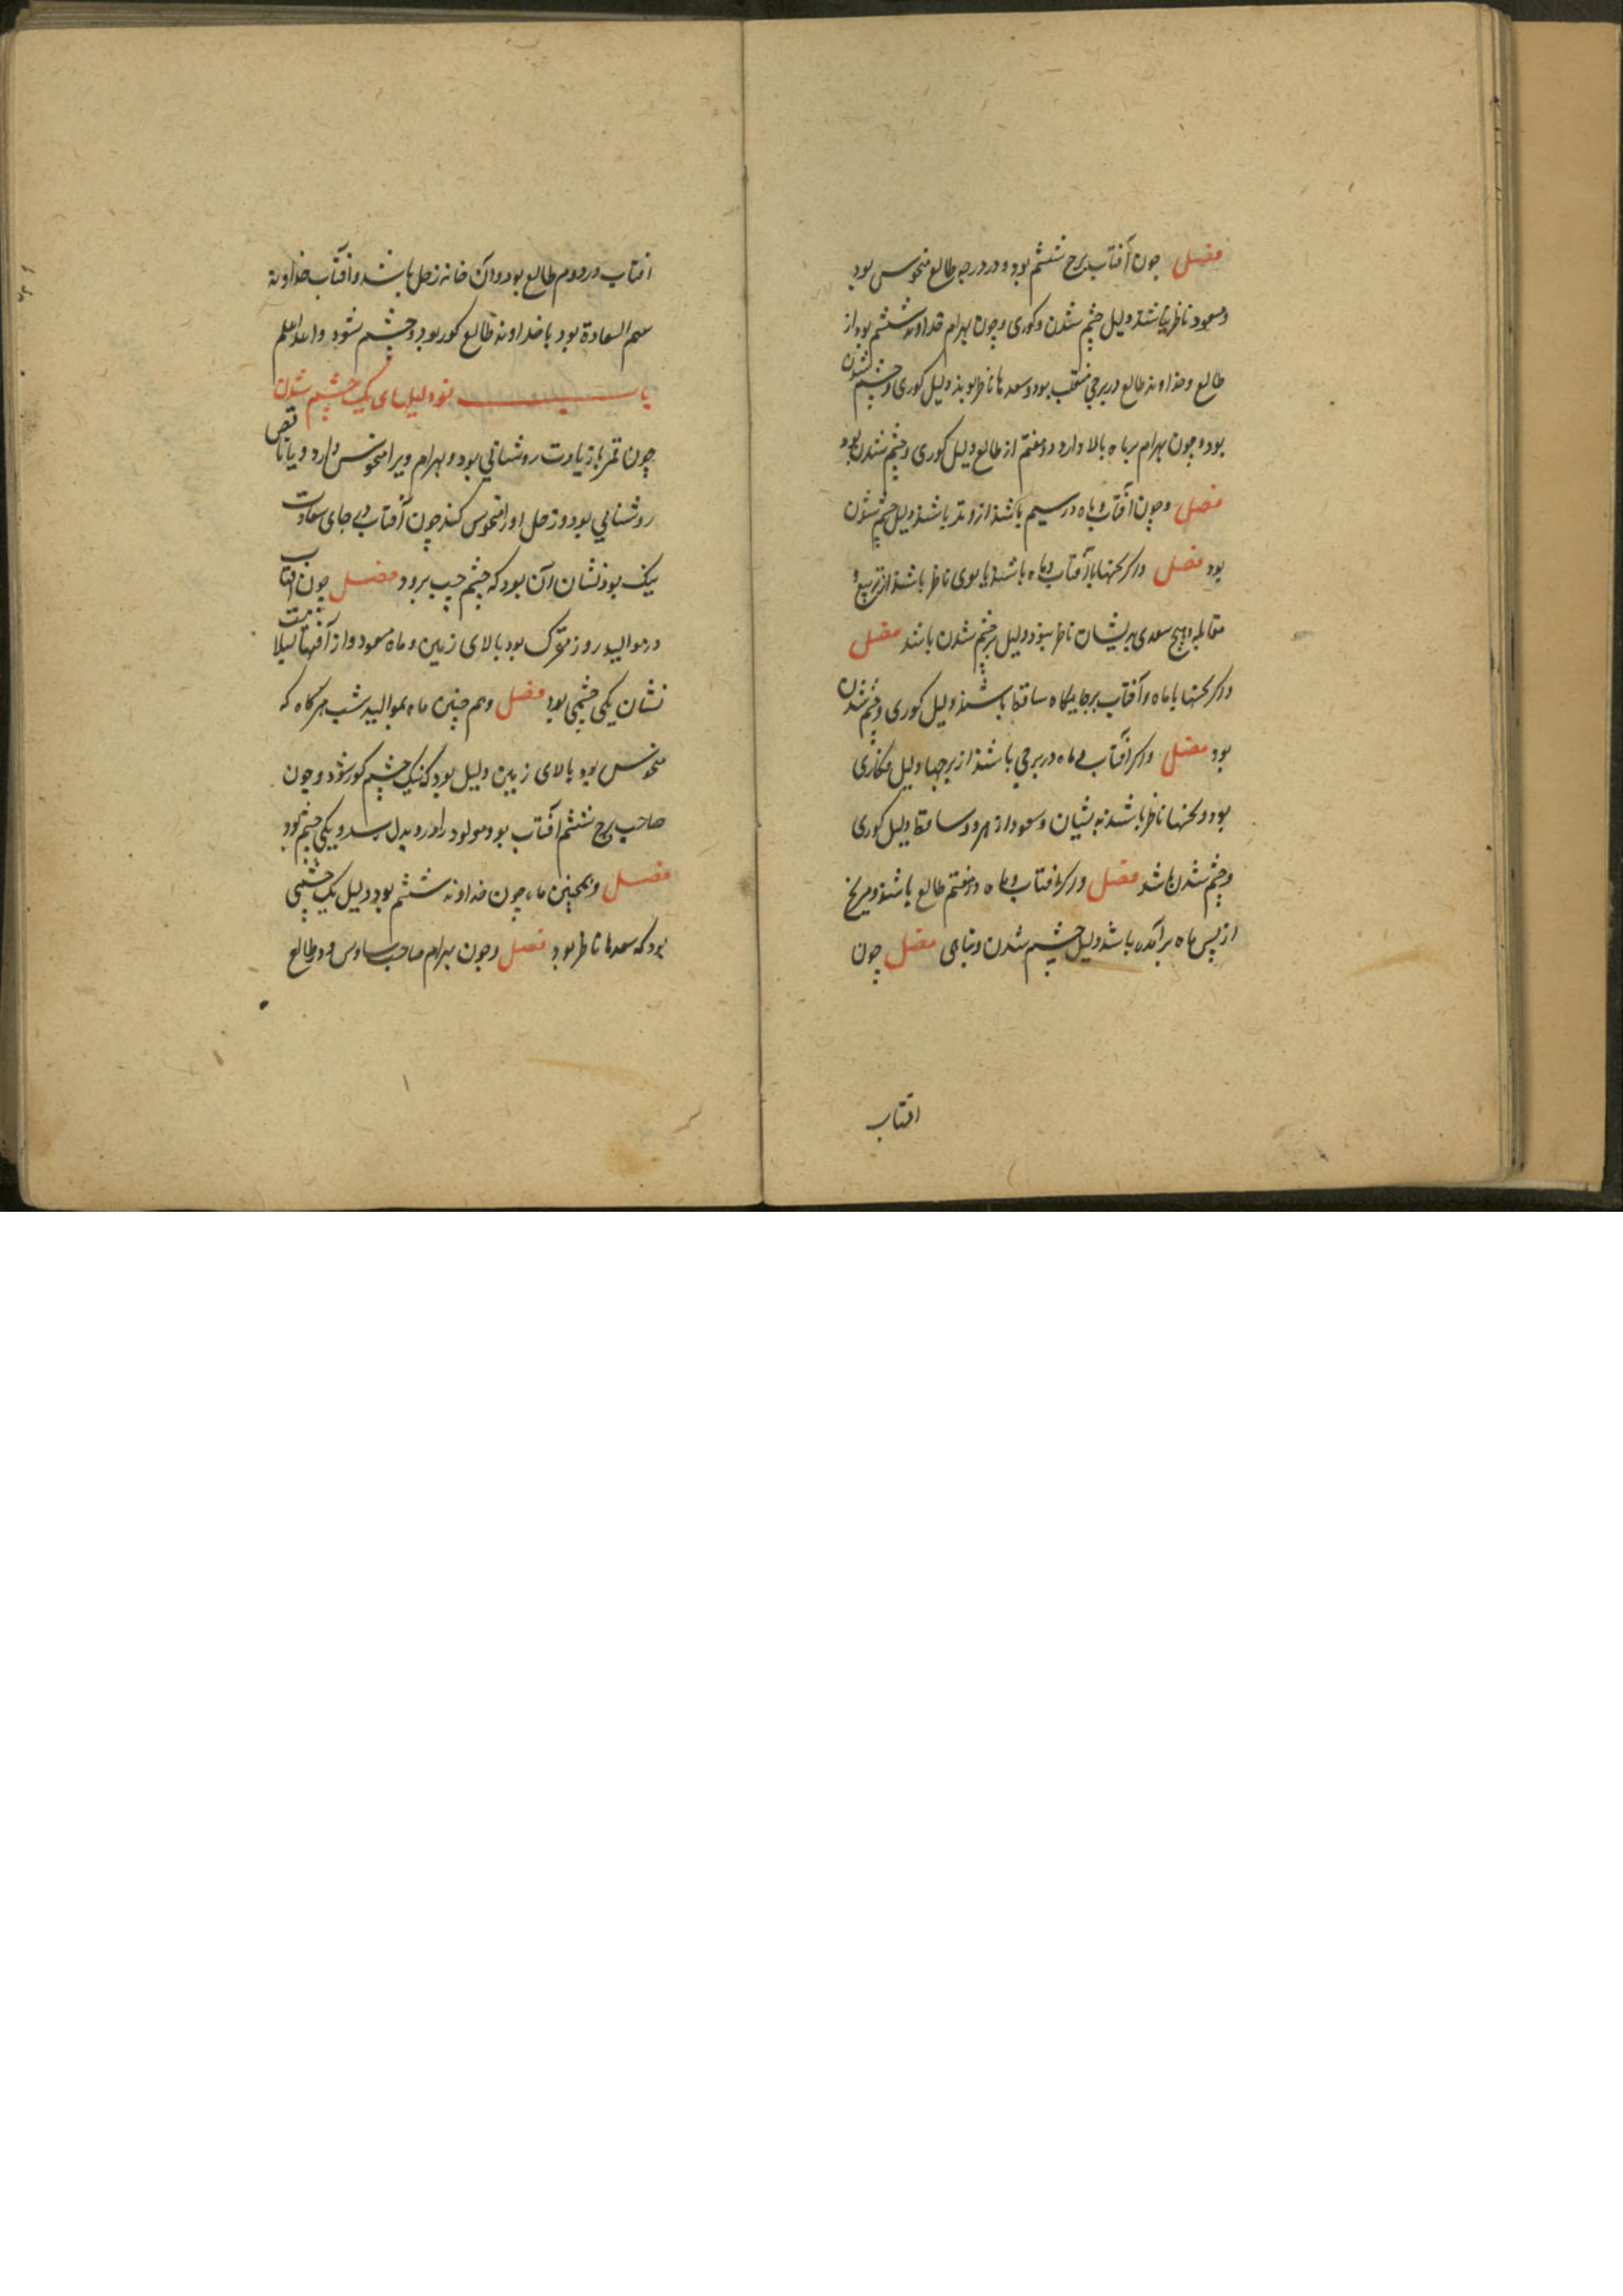 فصل چون آفتاب ببرج ششم بود و در درجه طالع منحوس بود
و سعود ناظر نباشند دلیل چشم شدن و کوری و چون بهرام خداوند ششم بود از
طالع و خداوند طالع در برجی منقلب بود و سعدها ناظر بوند دلیل کوری و چشم شدن
بود و چون بهرام بر ماه بالا دارد و هفتم از طالع دلیل کوری و چشم شدن بود
فصل و چون آفتاب و ماه در سیم باشند از وتد باشند دلیل چشم شدن
بود فصل و اگر نحسها با آفتاب و ماه باشند یا بوی ناظر باشند از تربیع و
مقابله و هیچ سعدی بریشان ناظر نبود دلیل بر چشم شدن باشد فصل
و اگر نحسها با ماه و آفتاب بر جایگاه ساقط باشند دلیل کوری و چشم شدن
بود فصل و اگر آفتاب و ماه در برجی باشند از برجها دلیل
بود و نحسها ناظر باشند بدیشان و سعود از هر دو ساقط دلیل کوری
و چشم شدن باشد فصل و اگر آفتاب و ماه در هفتم طالع باشند و مریخ
از پس ماه برآمده باشد دلیل چشم شدن و تباهی فصل چون
افتاب
افتاب در دوم طالع بود و آن خانه زحل باشد و آفتاب خداوند
سهم السعادة بود یا خداوند طالع کور بود و چشم شود والله اعلم
باب نو دلیلهای یک چشم شدن
چون قمر با زیادت روشنایی بود و بهرام ویرا منحوس دارد و یا ناقص
روشنایی بود و زحل اورا منحوس کند چون آفتاب بجای سعادت
نیک بود نشان آن بود که چشم چپ برود فصل چون آفتاب
در موالید روز بود بالای زمین و ماه مسعود و از آفتها
نشان یکی چشمی بود فصل و هم چنین ماه بموالید شب هرگاه که
منحوس بود بالای زمین دلیل بود که یک چشم کور شود و چون
صاحب برج ششم آفتاب بود و مولود را درد بدل رسد و یکی چشم بود
فصل و همچنین ماه چون خداوند ششم بود دلیل یک چشمی
بود که سعدها ناظر بود فصل و چون بهرام صاحب سادس و در طالع